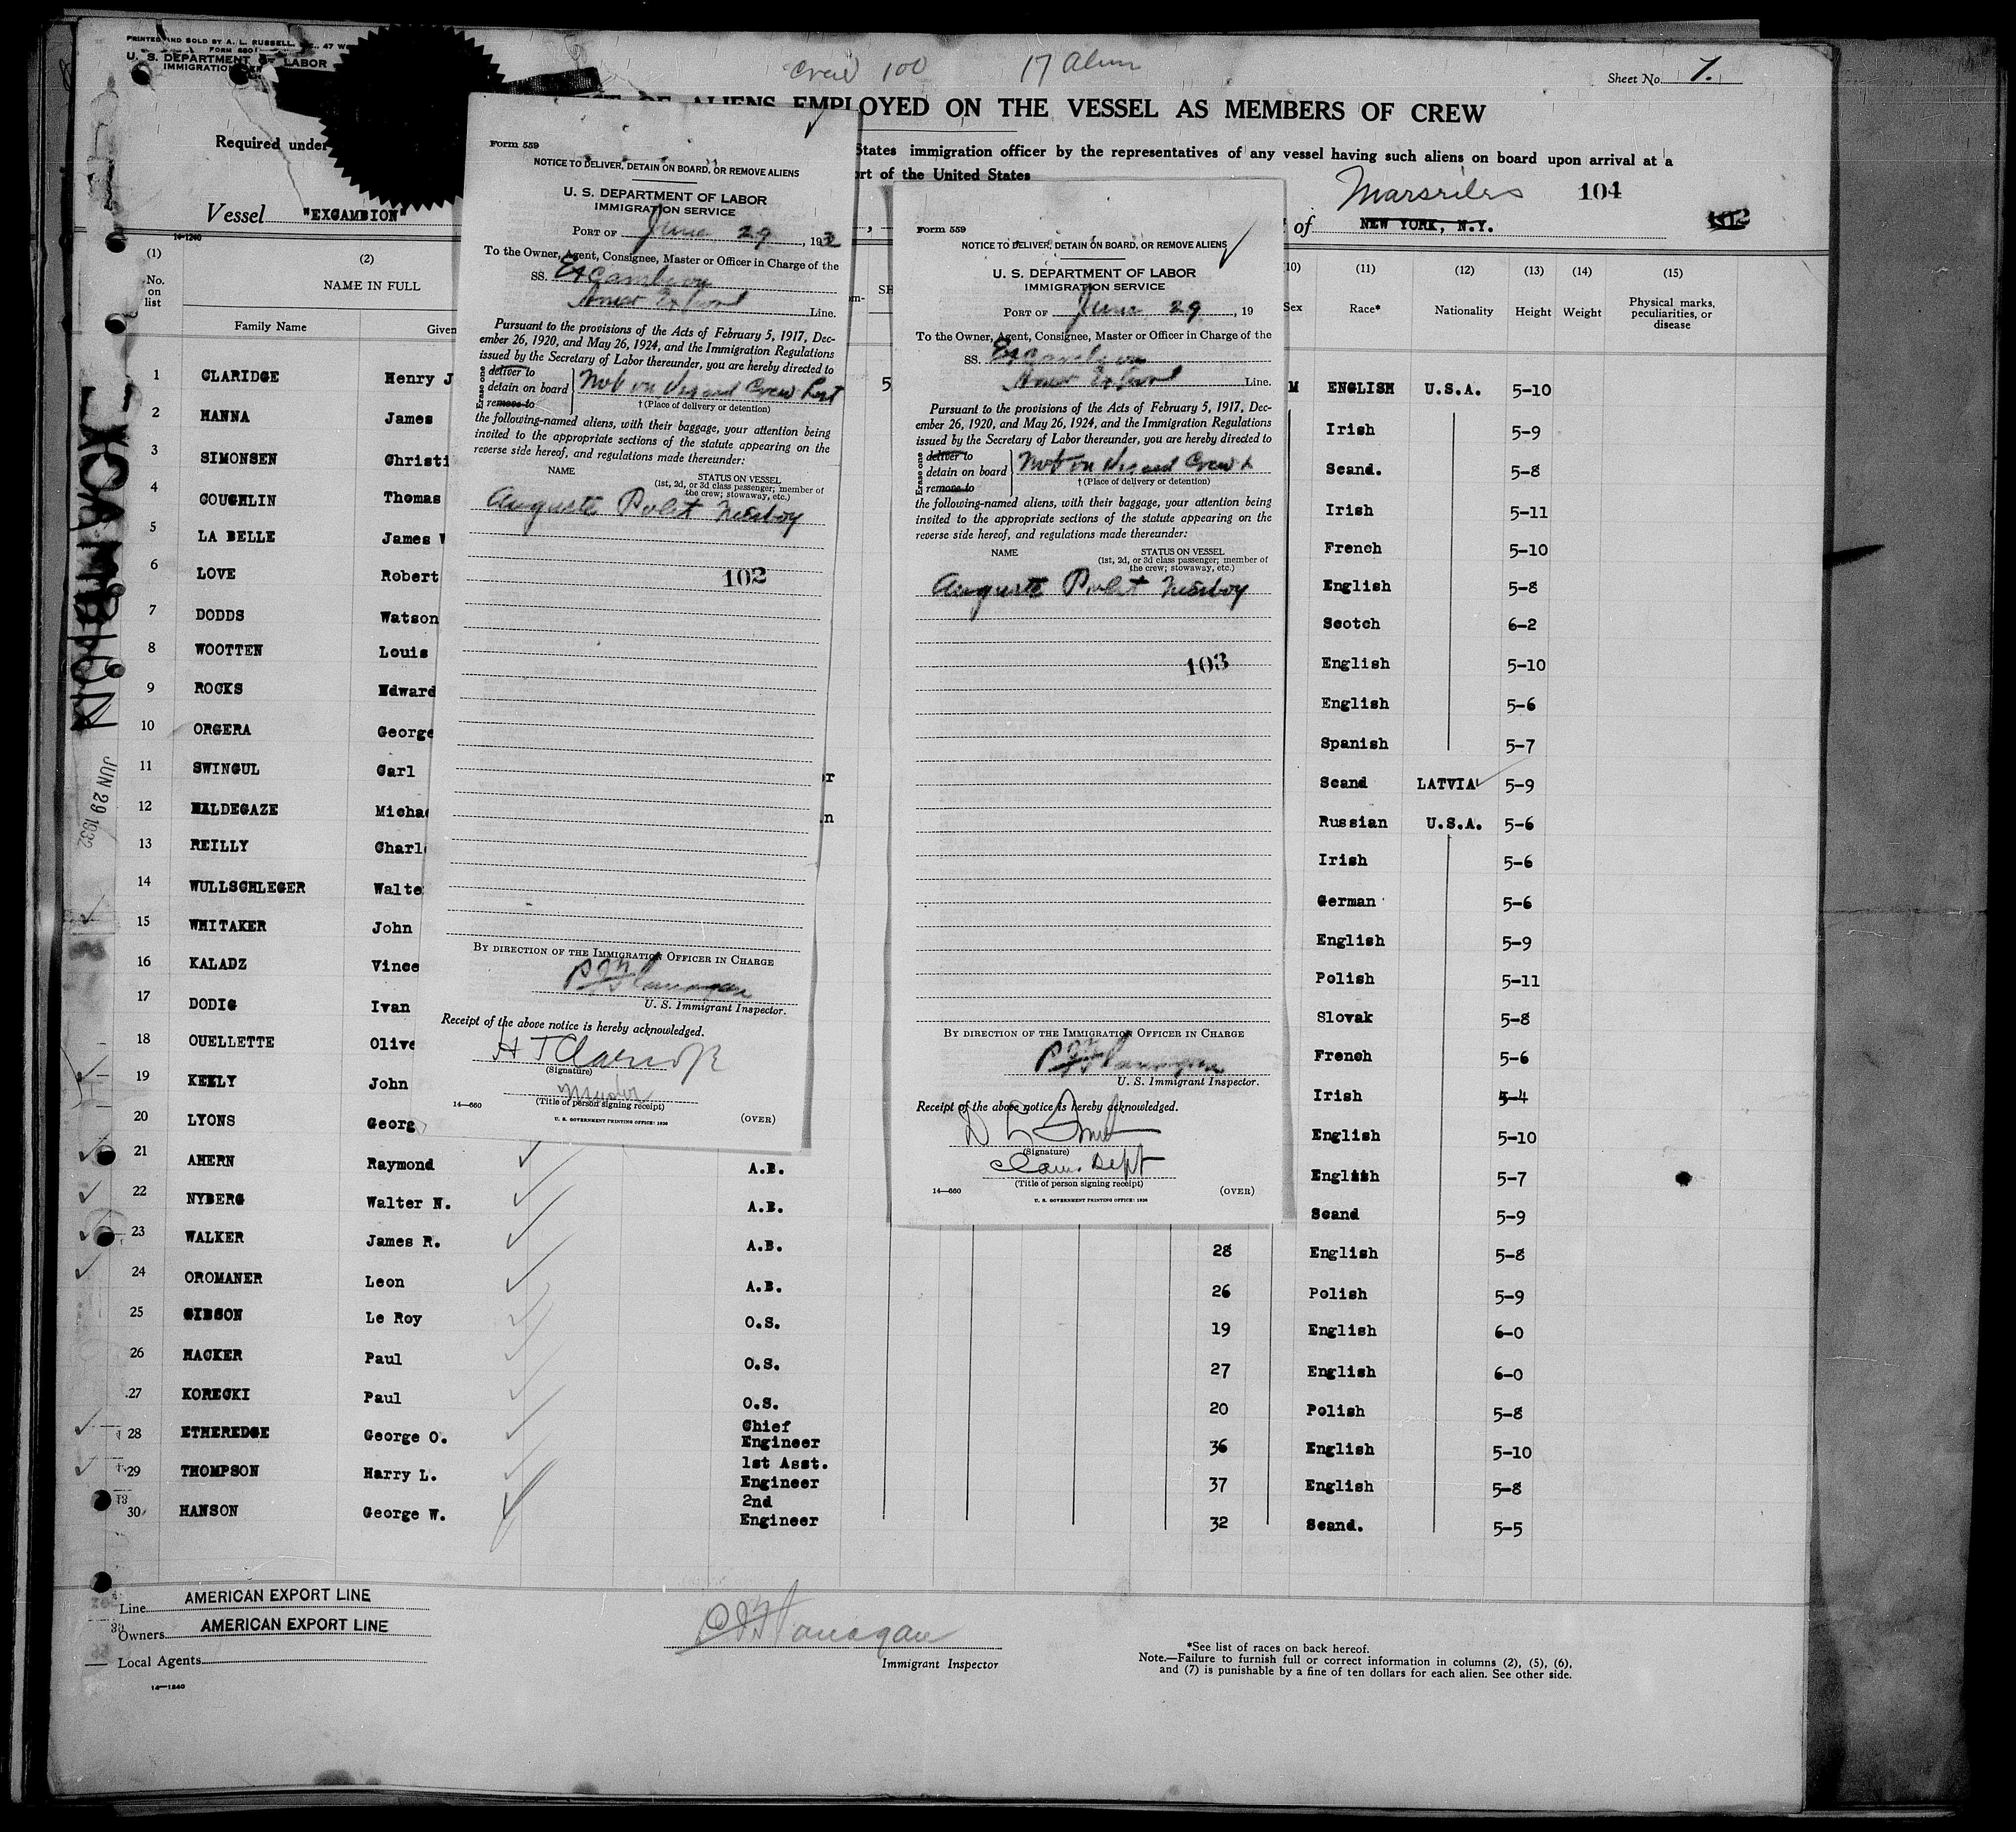 PRINTED AND SOLD BY A. L. RUSSELL, 47 W
FORM 680
U. S. DEPARTMENT OF LABOR
IMMIGRATION
Crew 100 17 Alien
Sheet No. 1.
LIST OF ALIENS EMPLOYED ON THE VESSEL AS MEMBERS OF CREW
Required under
States immigration officer by the representatives of any vessel having such aliens on board upon arrival at a
ort of the United States
Vessel "EXCAMBION"
of Marseilles
NEW YORK, N.Y.
104
102
14-1240
(1) (2) (10) (11) (12) (13) (14) (15)
No. on list NAME IN FULL Sex Race* Nationality Height Weight Physical marks, peculiarities, or disease
Family Name Given
1 CLARIDGE Henry J 5 M ENGLISH U.S.A. 5-10
2 HANNA James Irish 5-9
3 SIMONSEN Christi Scand. 5-8
4 COUGHLIN Thomas Irish 5-11
5 LA BELLE James W French 5-10
6 LOVE Robert English 5-8
7 DODDS Watson Scotch 6-2
8 WOOTTEN Louis English 5-10
9 ROCKS Edward English 5-6
10 ORGERA George Spanish 5-7
11 SWINGUL Carl r Scand LATVIA 5-9
12 HALDEGAZE Michae n Russian U.S.A. 5-6
13 REILLY Charl Irish 5-6
14 WULLSCHLEGER Walte German 5-6
15 WHITAKER John English 5-9
16 KALADZ Vince Polish 5-11
17 DODIG Ivan Slovak 5-8
18 OUELLETTE Olive French 5-6
19 KEELY John Irish 5-4
20 LYONS Georg English 5-10
21 AHERN Raymond A.B. English 5-7
22 NYBERG Walter N. A.B. Scand 5-9
23 WALKER James R. A.B. 28 English 5-8
24 OROMANER Leon A.B. 26 Polish 5-9
25 GIBSON Le Roy O.S. 19 English 6-0
26 HACKER Paul O.S. 27 English 6-0
27 KORECKI Paul O.S. 20 Polish 5-8
28 ETHEREDGE George O. Chief Engineer 36 English 5-10
29 THOMPSON Harry L. 1st Asst. Engineer 37 English 5-8
30 HANSON George W. 2nd Engineer 32 Scand. 5-5
EXCAMBION
JUN 29 1932
Form 559
NOTICE TO DELIVER, DETAIN ON BOARD, OR REMOVE ALIENS
U. S. DEPARTMENT OF LABOR
IMMIGRATION SERVICE
PORT OF June 29, 1932
To the Owner, Agent, Consignee, Master or Officer in Charge of the
SS. Excambion
Amer Export Line.
Pursuant to the provisions of the Acts of February 5, 1917, Dec-
ember 26, 1920, and May 26, 1924, and the Immigration Regulations
issued by the Secretary of Labor thereunder, you are hereby directed to
Erase one
deliver to
detain on board Not on Visaed Crew List
remove to
† (Place of delivery or detention)
the following-named aliens, with their baggage, your attention being
invited to the appropriate sections of the statute appearing on the
reverse side hereof, and regulations made thereunder:
NAME STATUS ON VESSEL
(1st, 2d, or 3d class passenger; member of
the crew; stowaway, etc.)
Auguste Polet Messboy
102
BY DIRECTION OF THE IMMIGRATION OFFICER IN CHARGE
P J Flanagan
U. S. Immigrant Inspector.
Receipt of the above notice is hereby acknowledged.
(Signature)
Master
(Title of person signing receipt)
14—660 (OVER)
U. S. GOVERNMENT PRINTING OFFICE: 1930
Form 559
NOTICE TO DELIVER, DETAIN ON BOARD, OR REMOVE ALIENS
U. S. DEPARTMENT OF LABOR
IMMIGRATION SERVICE
PORT OF June 29, 19
To the Owner, Agent, Consignee, Master or Officer in Charge of the
SS. Excambion
Amer Export Line.
Pursuant to the provisions of the Acts of February 5, 1917, Dec-
ember 26, 1920, and May 26, 1924, and the Immigration Regulations
issued by the Secretary of Labor thereunder, you are hereby directed to
Erase one
deliver to
detain on board Not on Visaed Crew L
remove to
† (Place of delivery or detention)
the following-named aliens, with their baggage, your attention being
invited to the appropriate sections of the statute appearing on the
reverse side hereof, and regulations made thereunder:
NAME STATUS ON VESSEL
(1st, 2d, or 3d class passenger; member of
the crew; stowaway, etc.)
Auguste Polet Messboy
103
BY DIRECTION OF THE IMMIGRATION OFFICER IN CHARGE
P J Flanagan
U. S. Immigrant Inspector.
Receipt of the above notice is hereby acknowledged.
(Signature)
Claim Dept
(Title of person signing receipt)
14—660 (OVER)
U. S. GOVERNMENT PRINTING OFFICE: 1930
Line AMERICAN EXPORT LINE
Owners AMERICAN EXPORT LINE
Local Agents
14—1240
P J Flanagan
Immigrant Inspector
*See list of races on back hereof.
Note.—Failure to furnish full or correct information in columns (2), (5), (6),
and (7) is punishable by a fine of ten dollars for each alien. See other side.